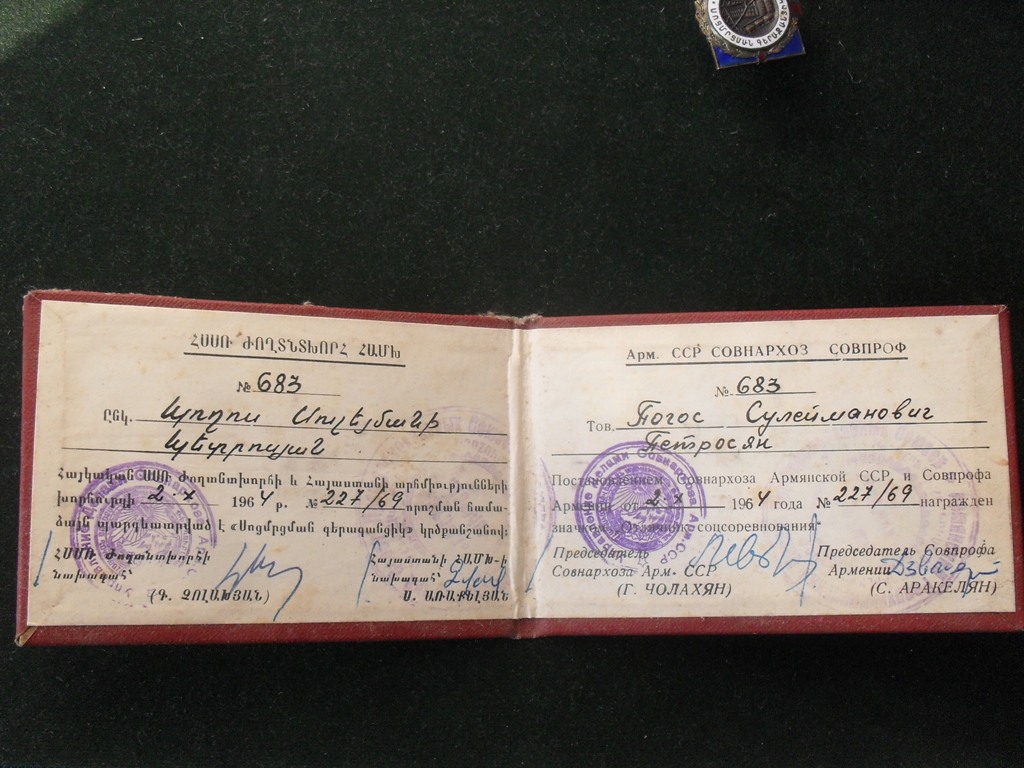 ՍՈՑՄՐՑՄԱՆ ԳԵՐԱԶԱՆՑԻԿ
ՀՍՍՌ ԺՈՂՏՆՏԽՈՐՀ ՀԱՄԽ
№ 683
Ընկ. Պողոս Սուլեյմանի
Պետրոսյան
Հայկական ՍՍՌ Ժողտնտխորհի և Հայաստանի արհմիությունների
խորհրդի 2.X 1964 թ. № 227/69 որոշման համա-
ձայն պարգևատրված է «Սոցմրցման գերազանցիկ» կրծքանշանով:
ՀՍՍՌ Ժողտնտխորհի
նախագահ՝
(Գ. ՉՈԼԱԽՅԱՆ)
Հայաստանի ՀԱՄԽ-ի
նախագահ՝
Ս. ԱՌԱՔԵԼՅԱՆ
Арм. ССР СОВНАРХОЗ СОВПРОФ
№ 683
Тов. Погос Сулейманович
Петросян
Постановлением Совнархоза Армянской ССР и Совпрофа
Армении от 2.X 1964 года № 227/69 награжден
значком „Отличник соцсоревнования“
Председатель
Совнархоза Арм. ССР
(Г. ЧОЛАХЯН)
Председатель Совпрофа
Армении
(С. АРАКЕЛЯН)